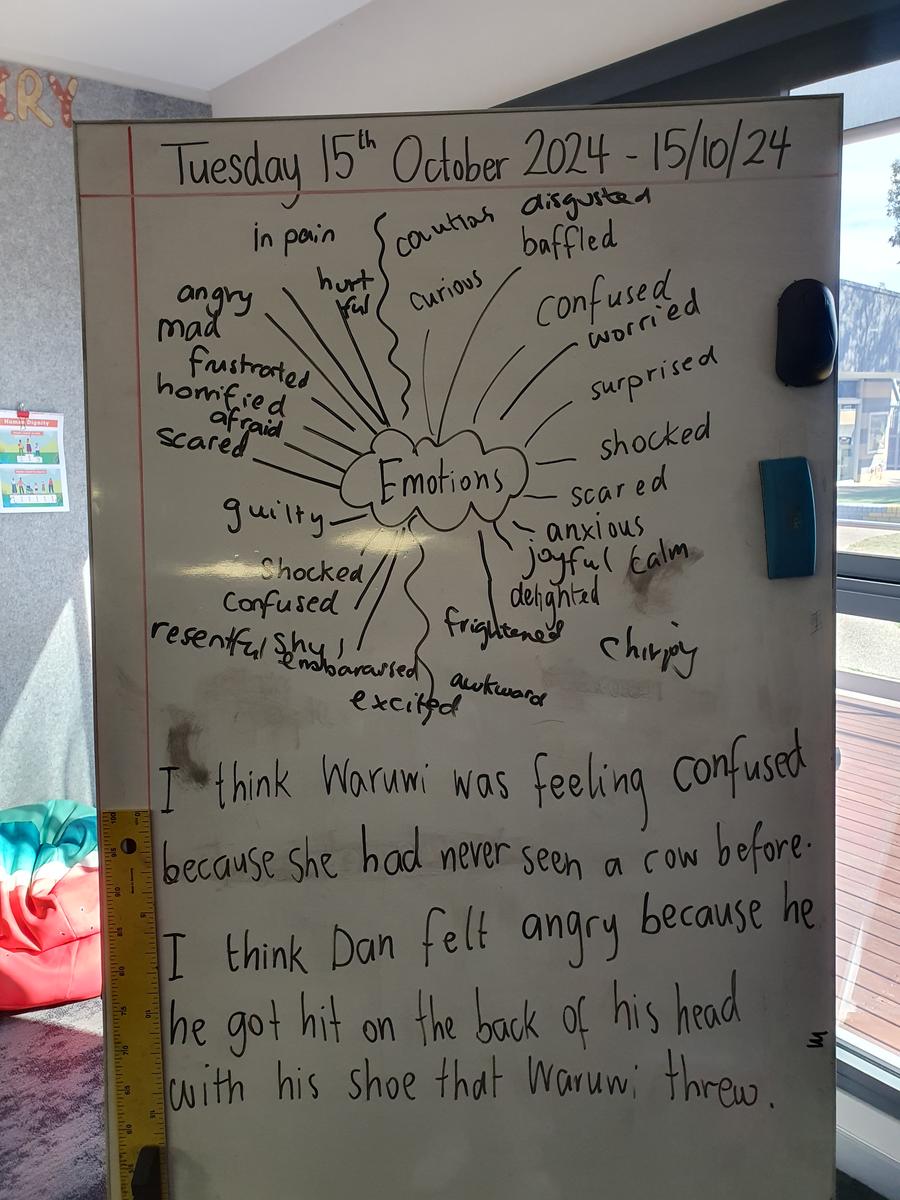 IRY
Tuesday 15th October 2024 - 15/10/24
in pain
coutias
disgusted
baffled
angry
hurt
ful
curious
confused
mad
worried
frustrated
surprised
horrified
afraid
scared
shocked
Emotions
scared
guilty
anxious
joyful
calm
Shocked
delighted
confused
frightened
resentful
shy
chirpy
embarassed
awkward
excited
Human Dignity
I think Waruwi was feeling confused
because she had never seen a cow before.
I think Dan felt angry because he
he got hit on the back of his head
with his shoe that Waruwi threw.